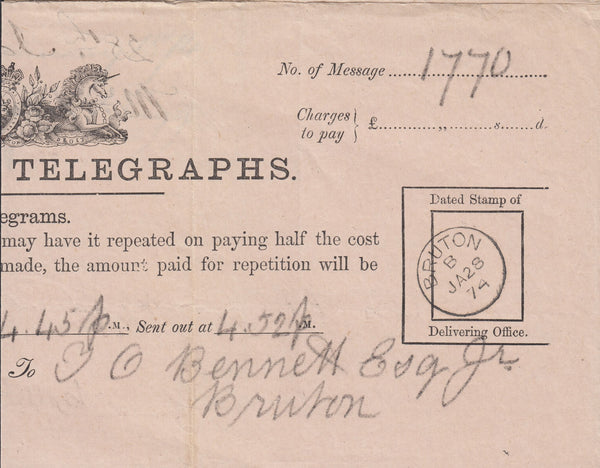 No. of Message 1770
Charges to pay } £ ,, s. d.
TELEGRAPHS.
egrams.
may have it repeated on paying half the cost
made, the amount paid for repetition will be
Dated Stamp of
BRUTON
B
JA 28
74
Delivering Office.
4.45 p.M., Sent out at 4.52 p.M.
To T O Bennett Esq Jr
Bruton